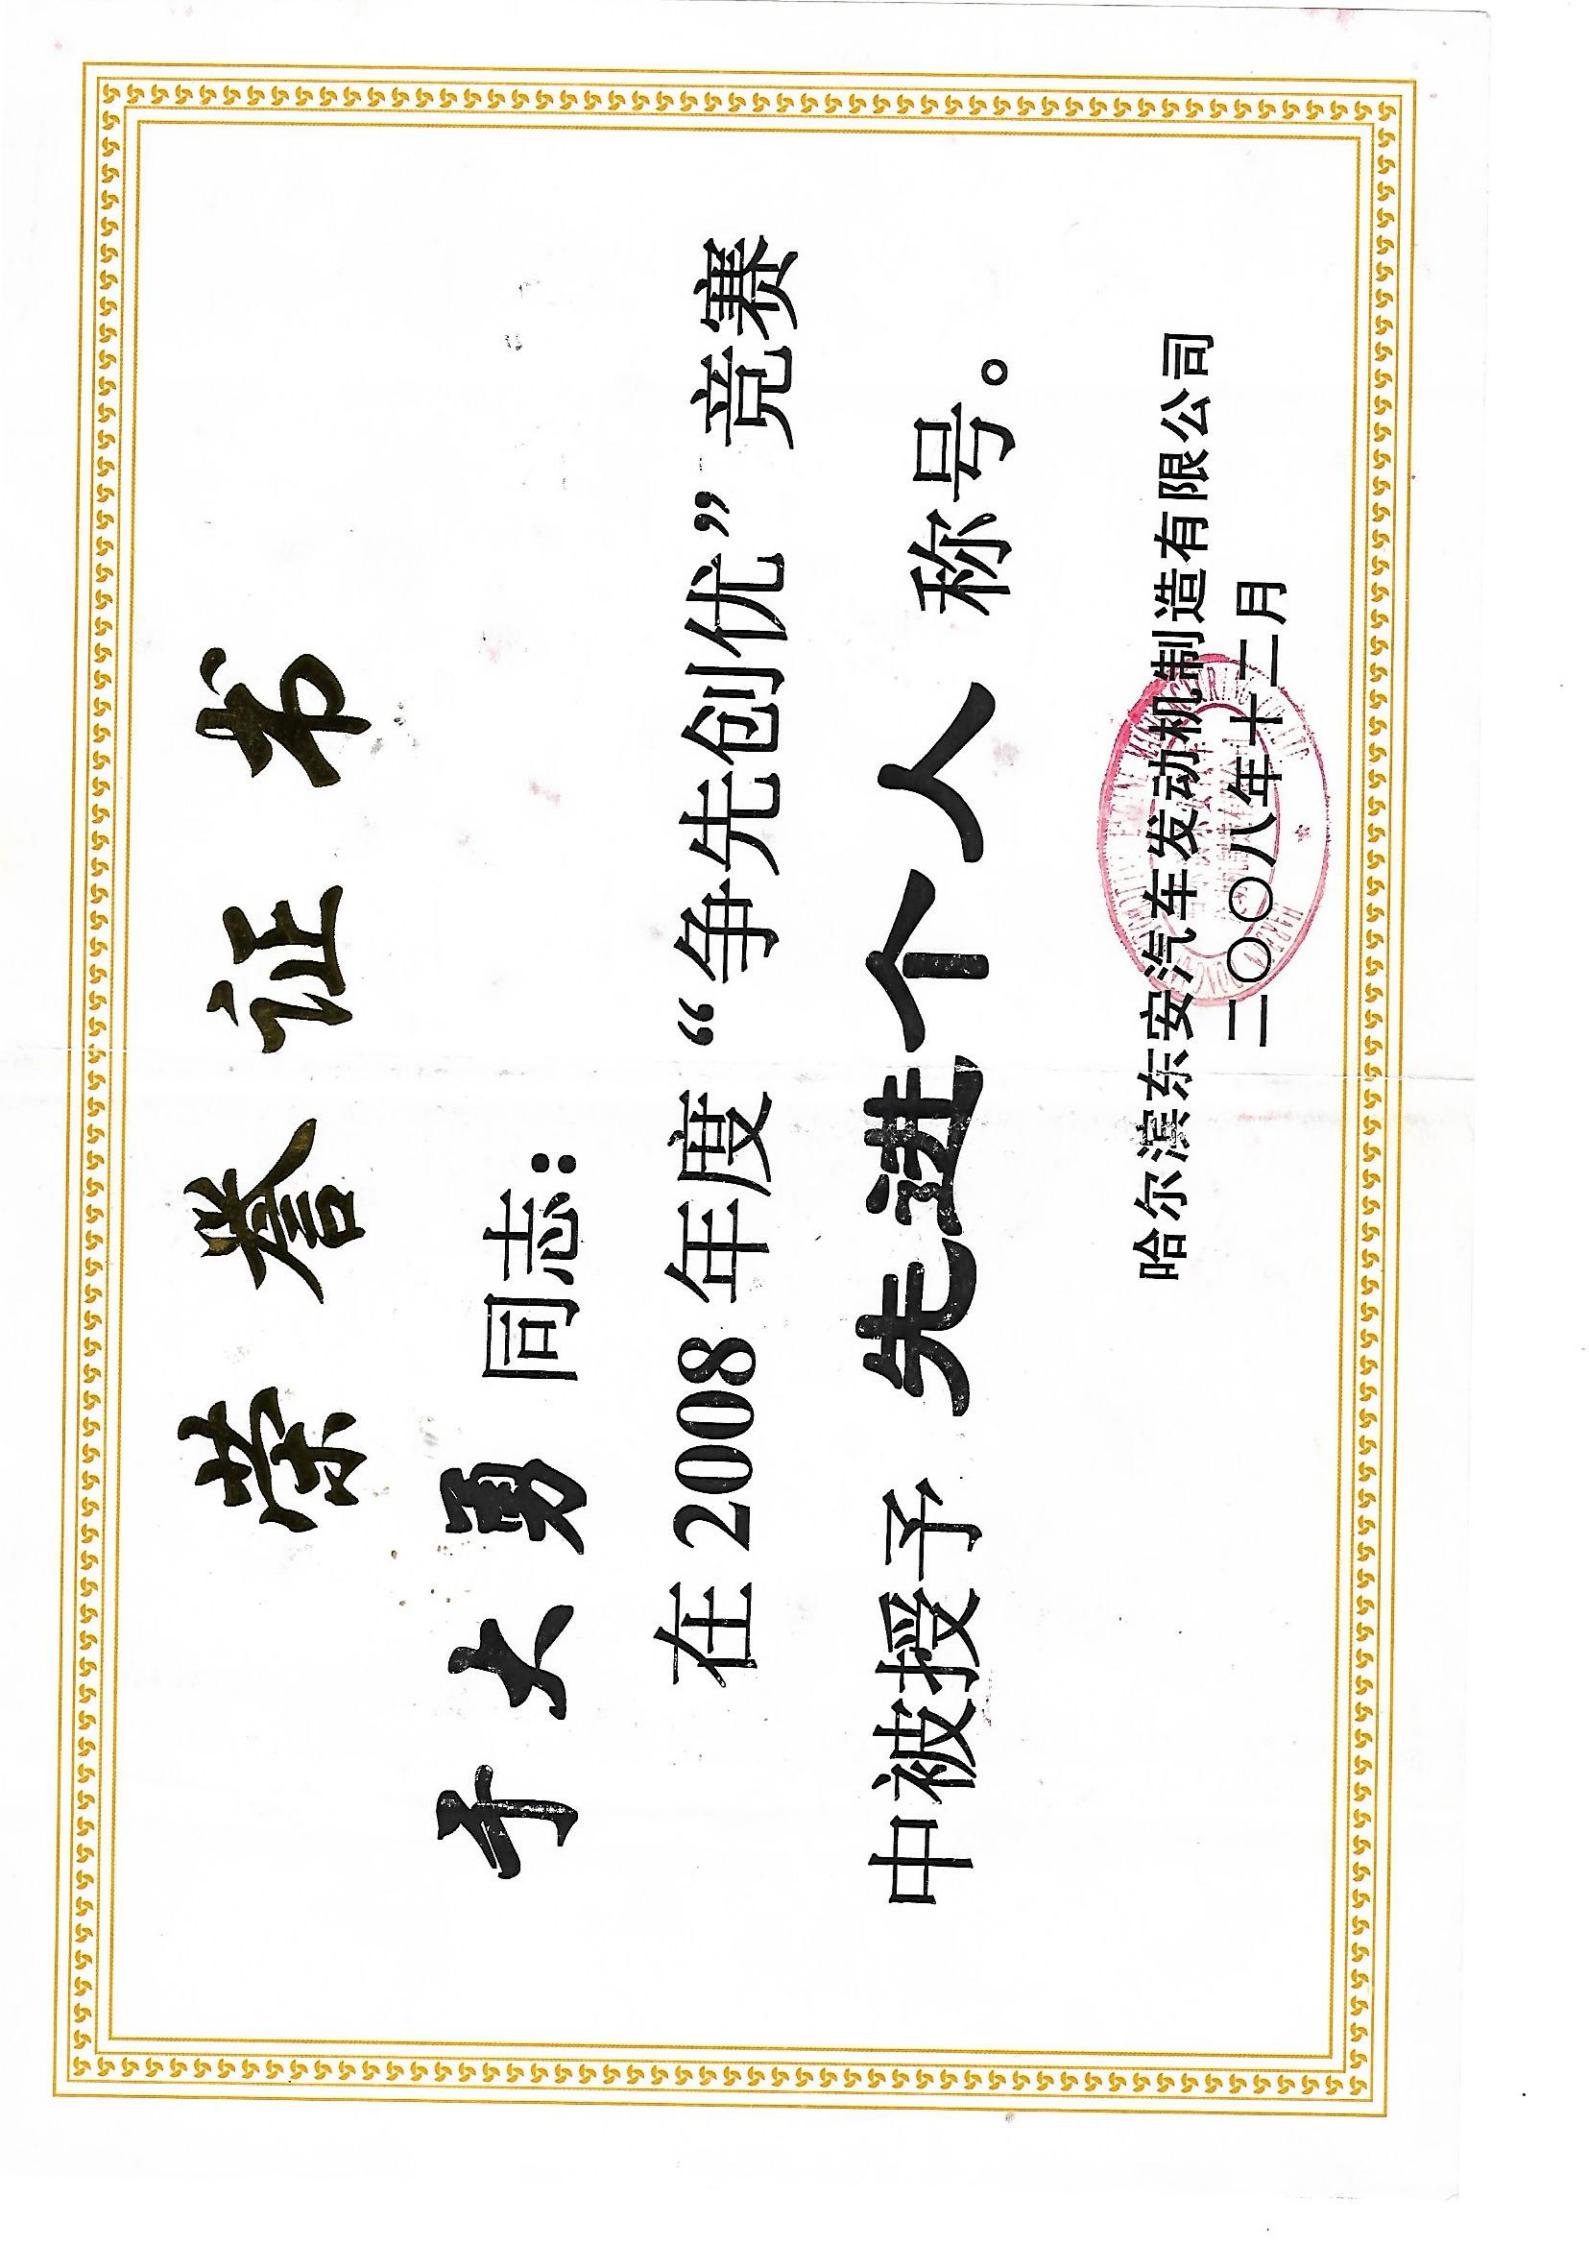 荣誉证书
于大勇 同志：
在 2008 年度“争先创优”竞赛
中被授予 先进个人 称号。
哈尔滨东安汽车发动机制造有限公司
二〇〇八年十二月